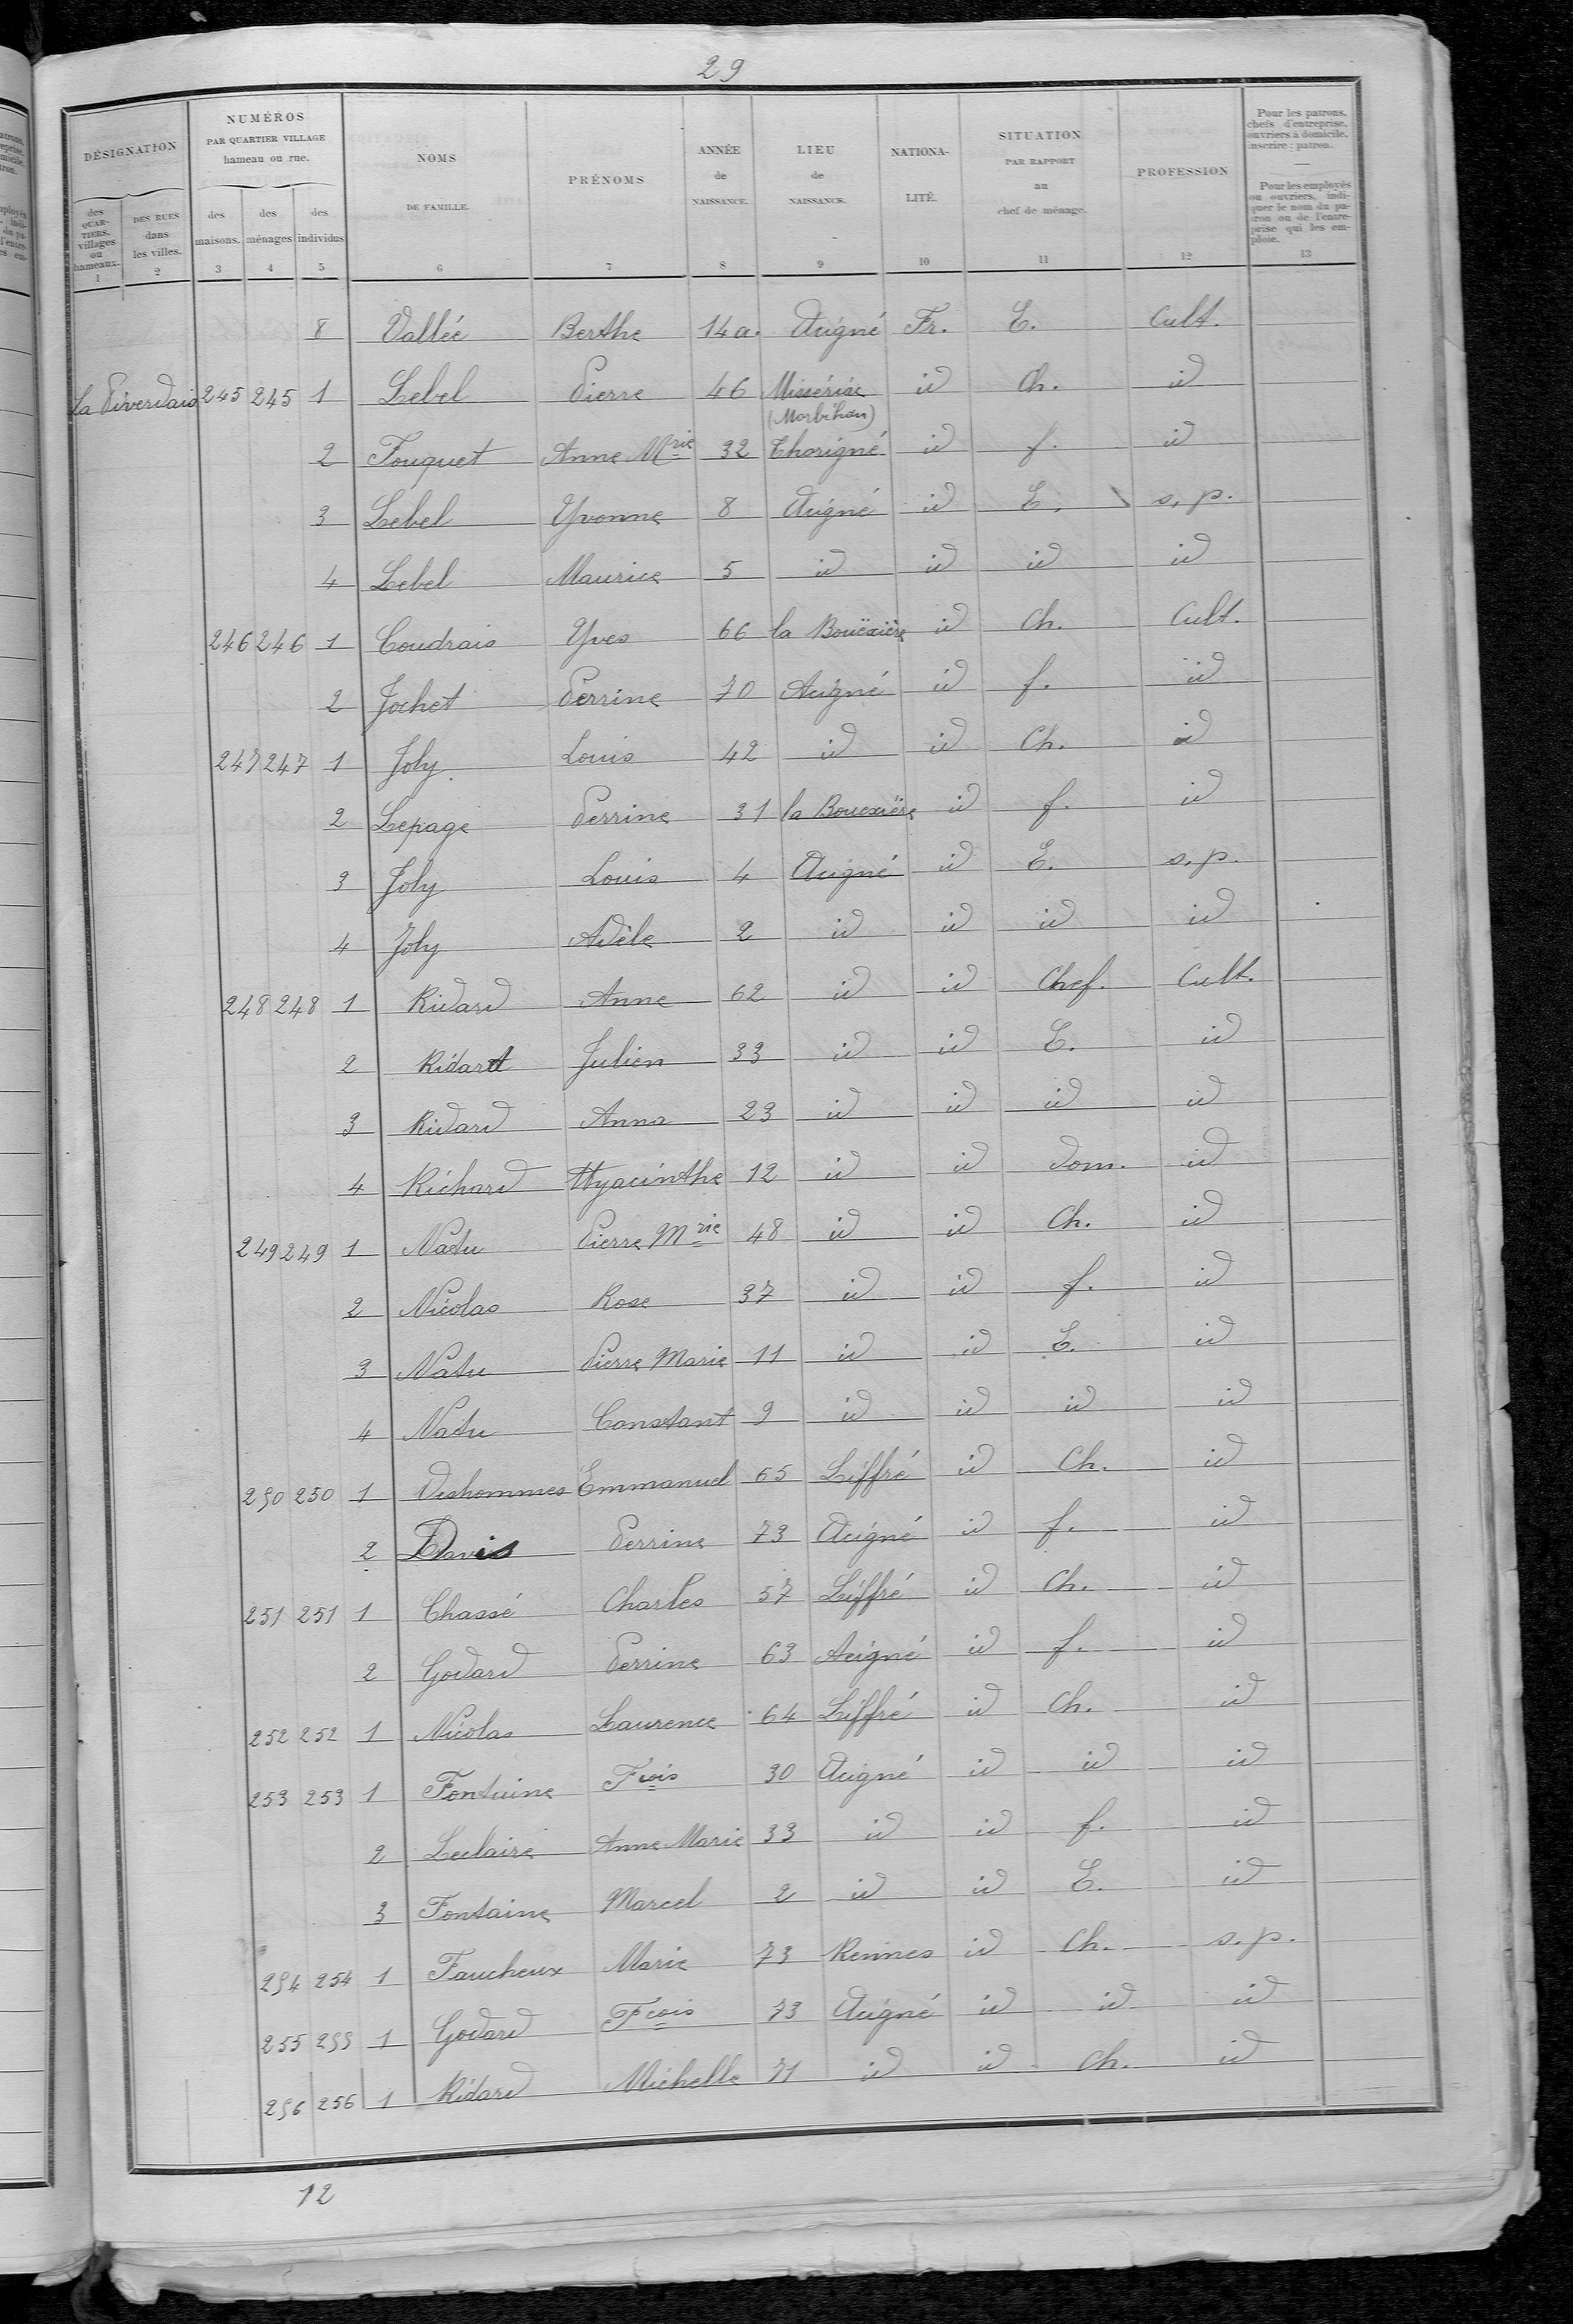 29
DÉSIGNATION
NUMÉROS
PAR QUARTIER VILLAGE
hameau ou rue.
NOMS
DE FAMILLE.
PRÉNOMS
ANNÉE
de
NAISSANCE.
LIEU
de
NAISSANCE.
NATIONA-
LITÉ.
SITUATION
PAR RAPPORT
au
chef de ménage.
PROFESSION
Pour les patrons,
chefs d'entreprise,
ouvriers à domicile,
inscrire : patron.
Pour les employés
ou ouvriers, indi-
quer le nom du pa-
tron ou de l'entre-
prise qui les em-
ploie.
des
QUAR-
TIERS,
villages
ou
hameaux.
DES RUES
dans
les villes.
des
maisons.
des
ménages
des
individus
1 2 3 4 5 6 7 8 9 10 11 12 13
8 Vallée Berthe 14 a. Acigné Fr. E. Cult.
La Piverdais 245 245 1 Lebel Pierre 46 Missériac (Morbihan) id Ch. id
2 Fouquet Anne Mrie 32 Thorigné id f. id
3 Lebel Yvonne 8 Acigné id E. s. p.
4 Lebel Maurice 5 id id id id
246 246 1 Coudrais Yves 66 la Bouëxière id Ch. Cult.
2 Jochet Perrine 70 Acigné id f. id
247 247 1 Joly Louis 42 id id Ch. id
2 Lepage Perrine 31 la Bouexière id f. id
3 Joly Louis 4 Acigné id E. s. p.
4 Joly Adèle 2 id id id id
248 248 1 Ridard Anne 62 id id Chef. Cult.
2 Ridard Julien 33 id id E. id
3 Ridard Anna 23 id id id id
4 Richard Hyacinthe 12 id id dom. id
249 249 1 Natu Pierre Mrie 48 id id Ch. id
2 Nicolas Rose 37 id id f. id
3 Natu Pierre Marie 11 id id E. id
4 Natu Constant 9 id id id id
250 250 1 Deshommes Emmanuel 65 Liffré id Ch. id
2 Davis Perrine 73 Acigné id f. id
251 251 1 Chassé Charles 57 Liffré id Ch. id
2 Godard Perrine 63 Acigné id f. id
252 252 1 Nicolas Laurence 64 Liffré id Ch. id
253 253 1 Fontaine Fcois 30 Acigné id id id
2 Leclaire Anne Marie 33 id id f. id
3 Fontaine Marcel 2 id id E. id
254 254 1 Faucheux Marie 73 Rennes id Ch. s. p.
255 255 1 Godard Fcois 73 Acigné id id id
256 256 1 Ridard Michelle 71 id id Ch. id
12